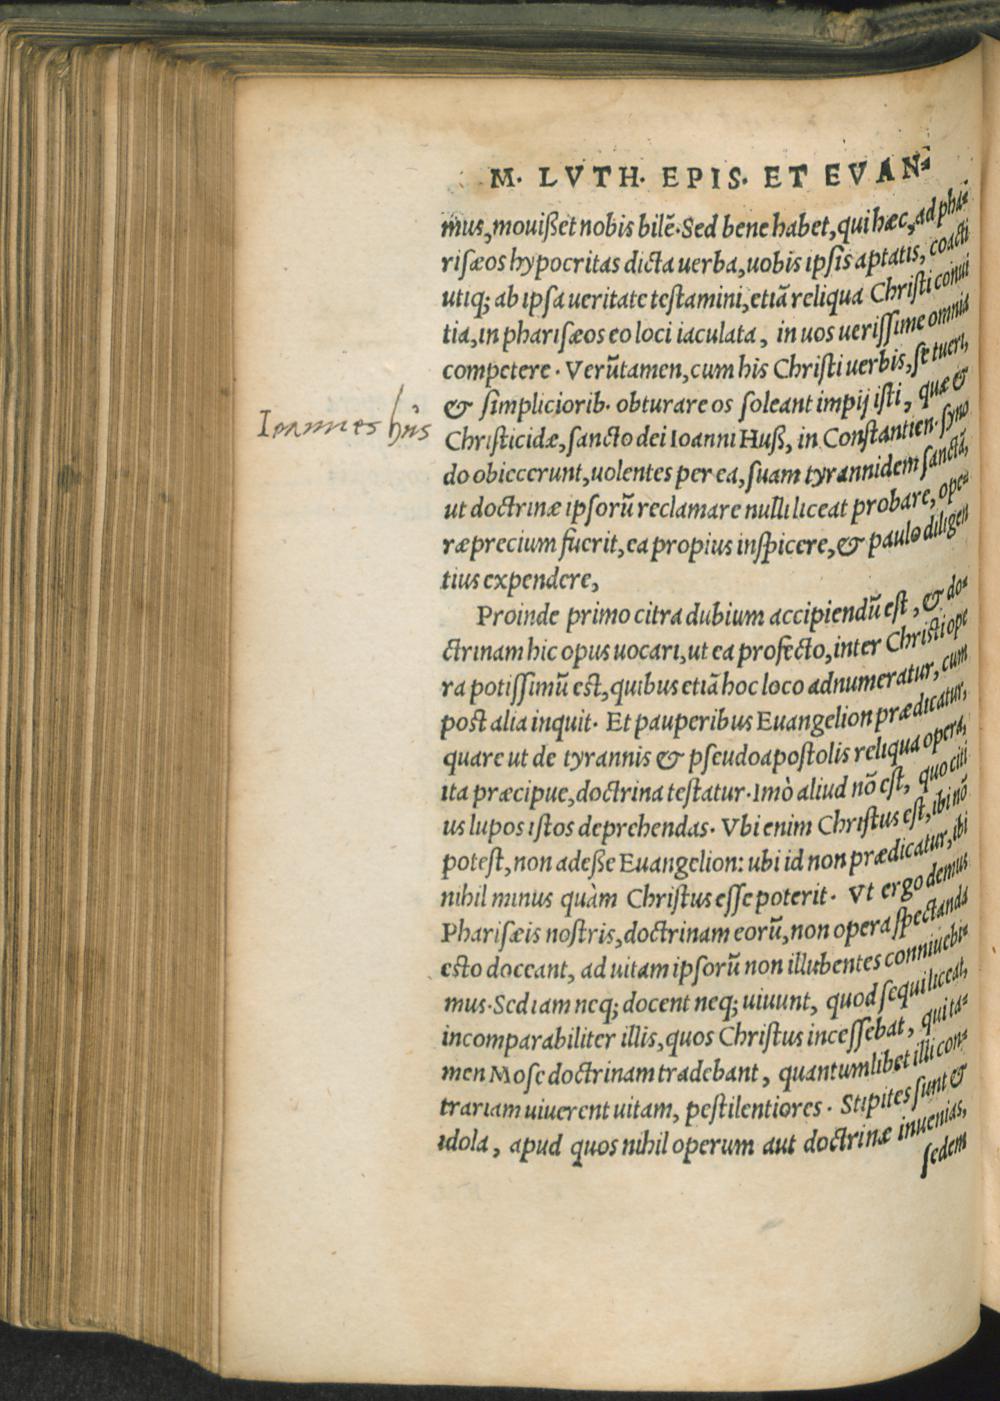 M. LVTH. EPIS. ET EVAN-
mus, mouißet nobis bilẽ. Sed bene habet, qui hæc, ad pha-
risæos hypocritas dicta uerba, uobis ipsis aptatis, coacti
utiq; ab ipsa ueritate testamini, etiã reliqua Christi conui
tia, in pharisæos eo loci iaculata, in uos uerissime omnia
competere. Verũtamen, cum his Christi uerbis, se tueri,
& simpliciorib. obturare os soleant impij isti, quæ &
Ioannes hus
Christicidæ, sancto dei Ioanni Huß, in Constantien. syno
do obiecerunt, uolentes per ea, suam tyrannidem sanctã,
ut doctrinæ ipsorũ reclamare nulli liceat probare, ope-
ræprecium fuerit, ea propius inspicere, & paulo diligen
tius expendere,
Proinde primo citra dubium accipiendũ est, & do-
ctrinam hic opus uocari, ut ea profecto, inter Christi ope
ra potissimũ est, quibus etiã hoc loco adnumeratur, cum
post alia inquit. Et pauperibus Euangelion prædicatur,
quare ut de tyrannis & pseudoapostolis reliqua opera,
ita præcipue, doctrina testatur. Imò aliud nõ est, quo citi
us lupos istos deprehendas. Vbi enim Christus est, ibi nõ
potest, non adeße Euangelion: ubi id non prædicatur, ibi
nihil minus quàm Christus esse poterit. Vt ergo demus
Pharisæis nostris, doctrinam eorũ, non opera spectanda
esto doceant, ad uitam ipsorũ non illubentes conniuebi-
mus. Sed iam neq; docent neq; uiuunt, quod sequi liceat,
incomparabiliter illis, quos Christus incessebat, qui ta-
men Mose doctrinam tradebant, quantumlibet illi con-
trariam uiuerent uitam, pestilentiores. Stipites sunt &
idola, apud quos nihil operum aut doctrinæ inuenias,
sedem